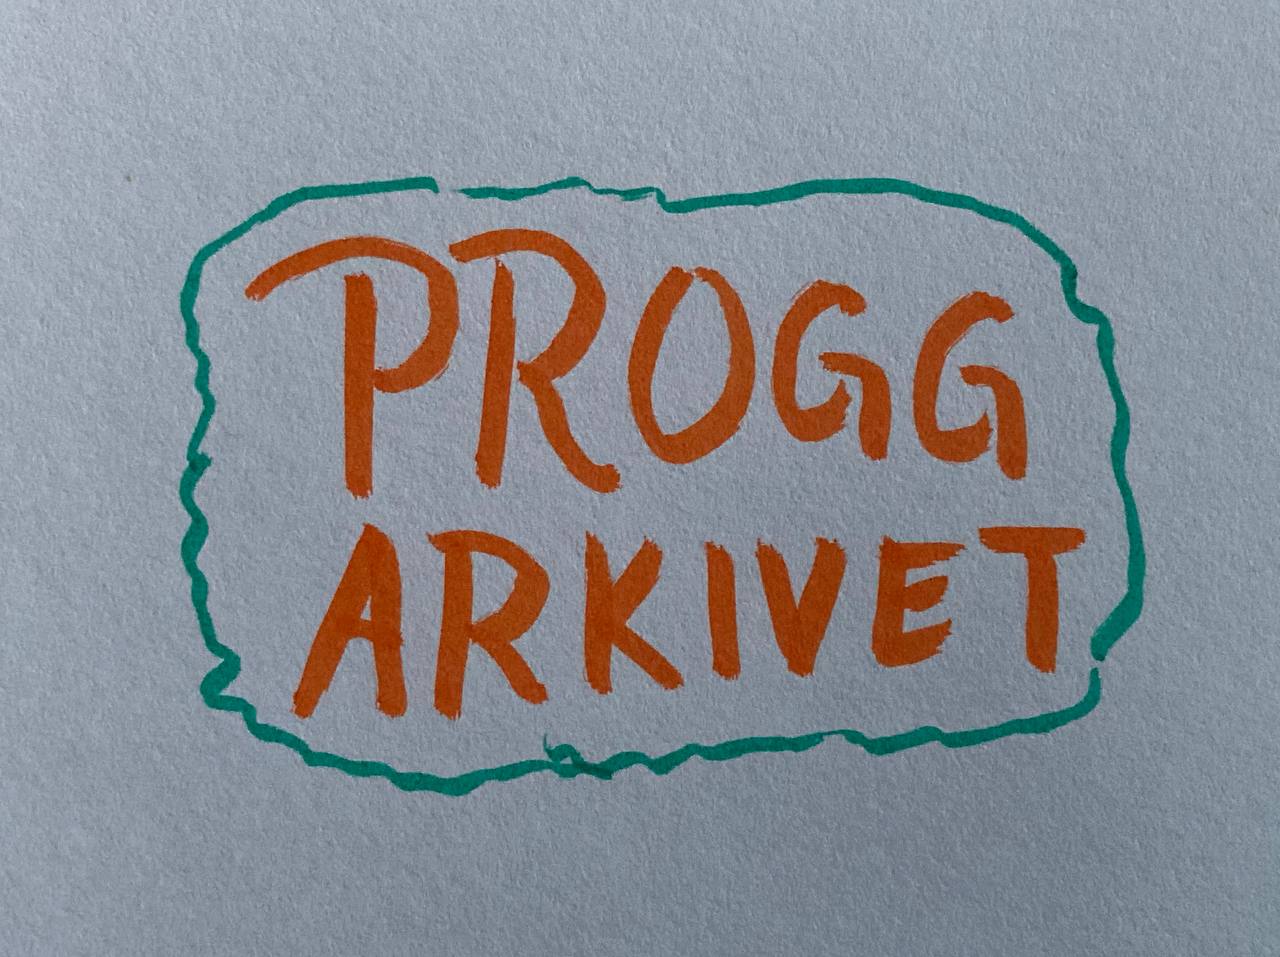 PROGG
ARKIVET